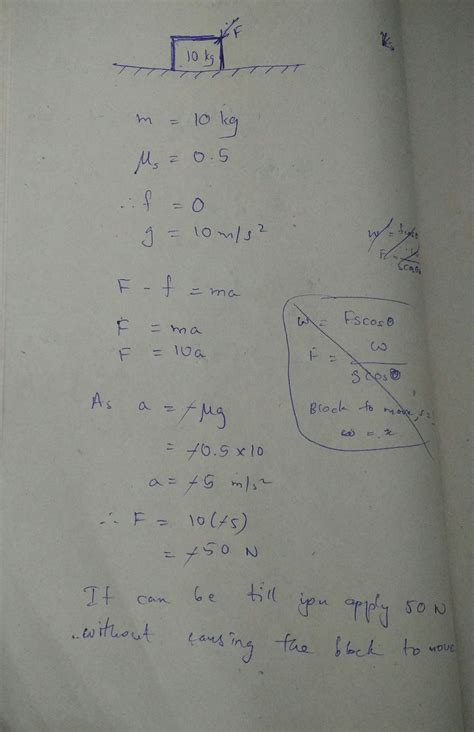 F
10 kg
m = 10 kg
μs = 0.5
∴ f = 0
g = 10 m/s²
F - f = ma
F = ma
F = 10a
W = FScosθ
F = ω
scosθ
Block to move, s=
ω = x
As a = μg
= 0.5 x 10
a = 5 m/s²
∴ F = 10(5)
= 50 N
It can be till you apply 50 N
without causing the block to move